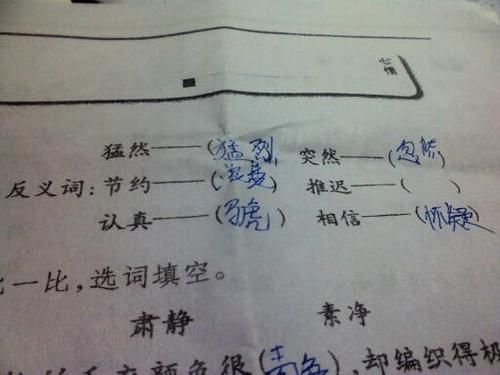 心情
猛然——(猛烈) 突然——(忽然)
反义词：节约——(浪费) 推迟——( )
认真——(马虎) 相信——(怀疑)
比一比，选词填空。
肃静 素净
颜色很(), 却编织得极